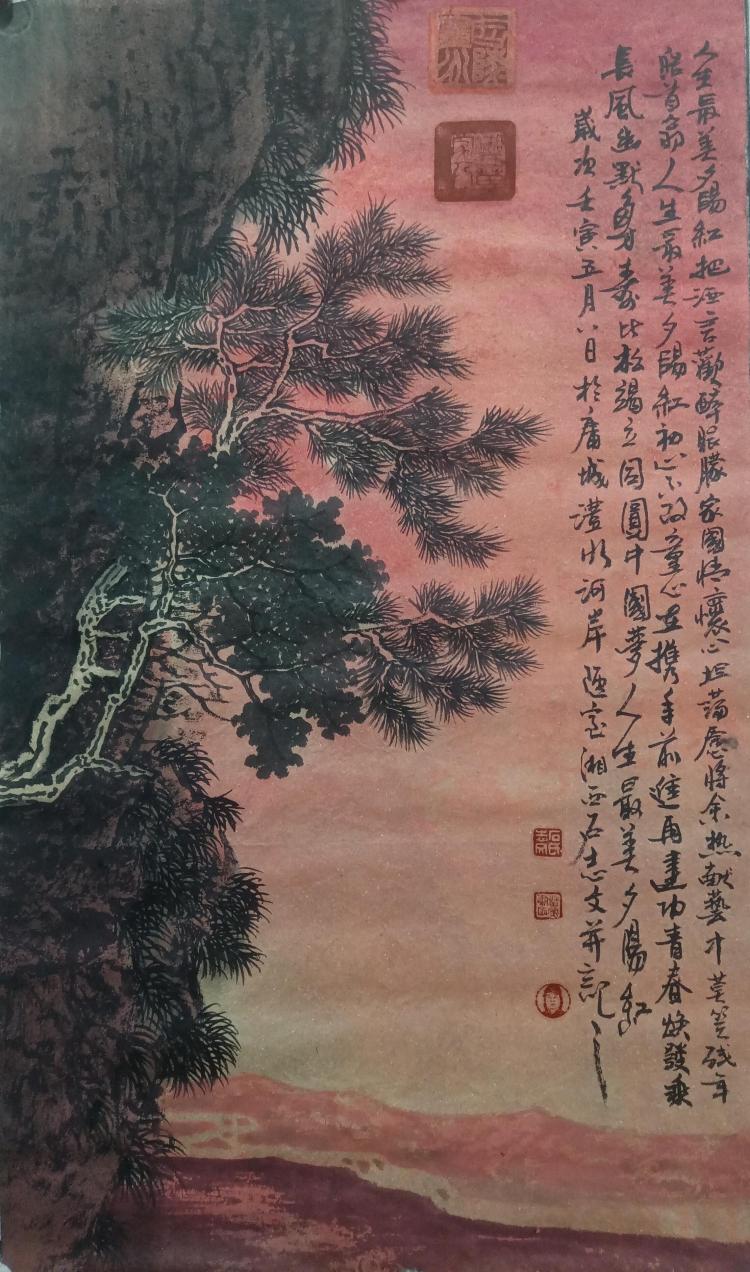 人生最美夕陽紅把酒言歡醉眼朦家國情懷心坦蕩愿將余热献藝才莫笑残年
人生最美夕陽紅初心不改童心在携手前進再建功青春焕發乘
長風幽默身寿比松竭立因圓中國夢人生最美夕陽紅
歲次壬寅五月八日於庸城澧水河岸陋室湘西石志文并記之